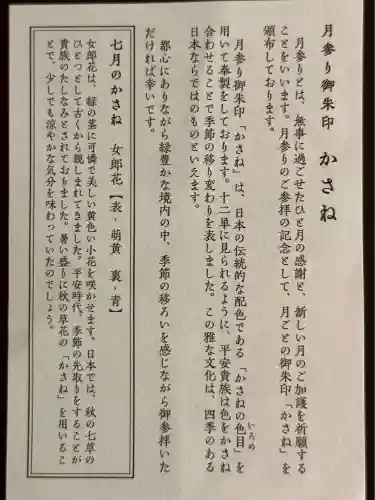 月参り御朱印 かさね
月参りとは、無事に過ごせたひと月の感謝と、新しい月のご加護を祈願する
ことをいいます。月参りのご参拝の記念として、月ごとの御朱印「かさね」を
頒布しております。
月参り御朱印「かさね」は、日本の伝統的な配色である「かさねの色目」を
いろめ
用いて奉製をしております。十二単に見られるように、平安貴族は色をかさね
合わせることで季節の移り変わりを表しました。この雅な文化は、四季のある
日本ならではのものといえます。
都心にありながら緑豊かな境内の中、季節の移ろいを感じながら御参拝いた
だければ幸いです。
七月のかさね 女郎花【表-萌黄 裏-青】
女郎花は、緑の茎に可憐で美しい黄色い小花を咲かせます。日本では、秋の七草の
ひとつとして古くから親しまれてきました。平安時代、季節の先取りをすることが
貴族のたしなみとされておりました。暑い盛りに秋の草花の「かさね」を用いるこ
とで、少しでも涼やかな気分を味わっていたのでしょう。